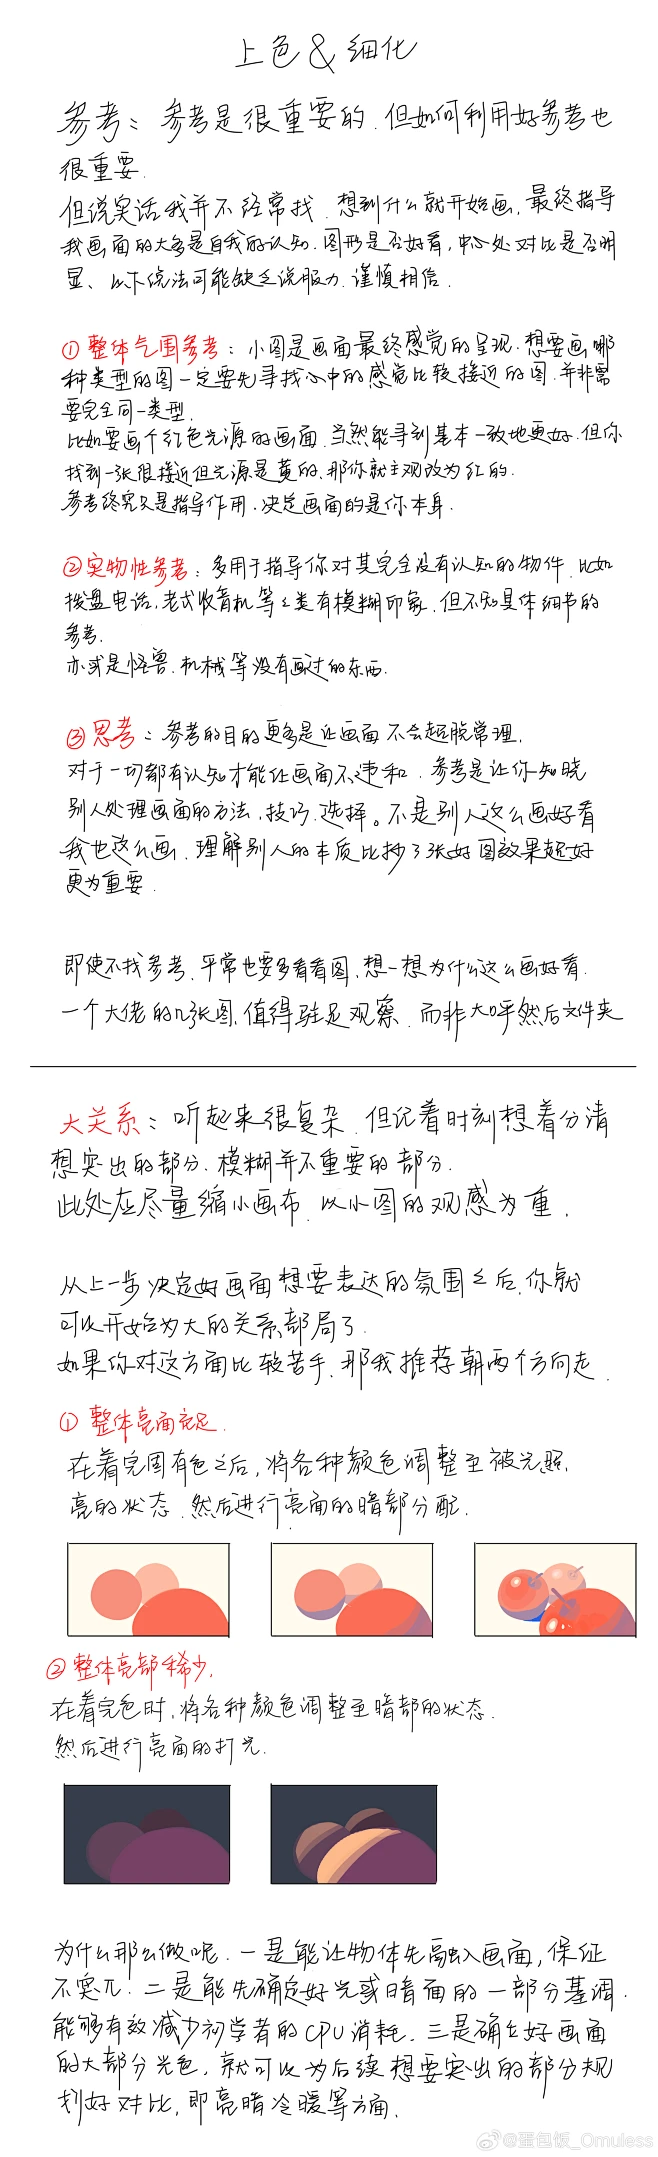 上色&细化
参考：参考是很重要的.但如何利用好参考也
很重要.
但说实话我并不经常找.想到什么就开始画,最终指导
我画面的大多是自我的认知.图形是否好看,中心处对比是否明
显、以下说法可能缺乏说服力.谨慎相信.
①整体气围参考：小图是画面最终感觉的呈现.想要画哪
种类型的图一定要先寻找心中的感觉比较接近的图.并非需
要完全同一类型.
比如要画个红色光源的画面.当然能寻到基本一致地更好.但你
找到一张很接近但光源是黄的,那你就主观改为红的.
参考终究只是指导作用.决定画面的是你本身.
②实物性参考：多用于指导你对其完全没有认知的物件.比如
拨盘电话,老式收音机等之类有模糊印象.但不知具体细节的
参考.
亦或是怪兽.机械等没有画过的东西.
③思考：参考的目的更多是让画面不会超脱常理.
对于一切都有认知才能让画面不违和.参考是让你知晓
别人处理画面的方法,技巧.选择。不是别人这么画好看
我也这么画.理解别人的本质比抄了张好图效果起好
更为重要.
即使不找参考,平常也要多看看图,想一想为什么这么画好看.
一个大佬的几张图,值得驻足观察.而非大呼然后文件夹
大关系：听起来很复杂.但记着时刻想着分清
想突出的部分.模糊并不重要的部分.
此处应尽量缩小画布.以小图的观感为重.
从上一步决定好画面想要表达的氛围之后,你就
可以开始为大的关系部局了.
如果你对这方面比较苦手.那我推荐朝两个方向走.
①整体亮面充足.
在着完固有色之后,将各种颜色调整至被光照.
亮的状态.然后进行亮面的暗部分配.
②整体亮部稀少,
在着完色时,将各种颜色调整至暗部的状态.
然后进行亮面的打光.
为什么那么做呢.一是能让物体先融入画面,保证
不突兀.二是能先确定好光或暗面的一部分基调.
能够有效减少初学者的CPU消耗.三是确立好画面
的大部分光色,就可以为后续想要突出的部分规
划好对比,即亮暗冷暖等方面.
@蛋包饭_Omuless